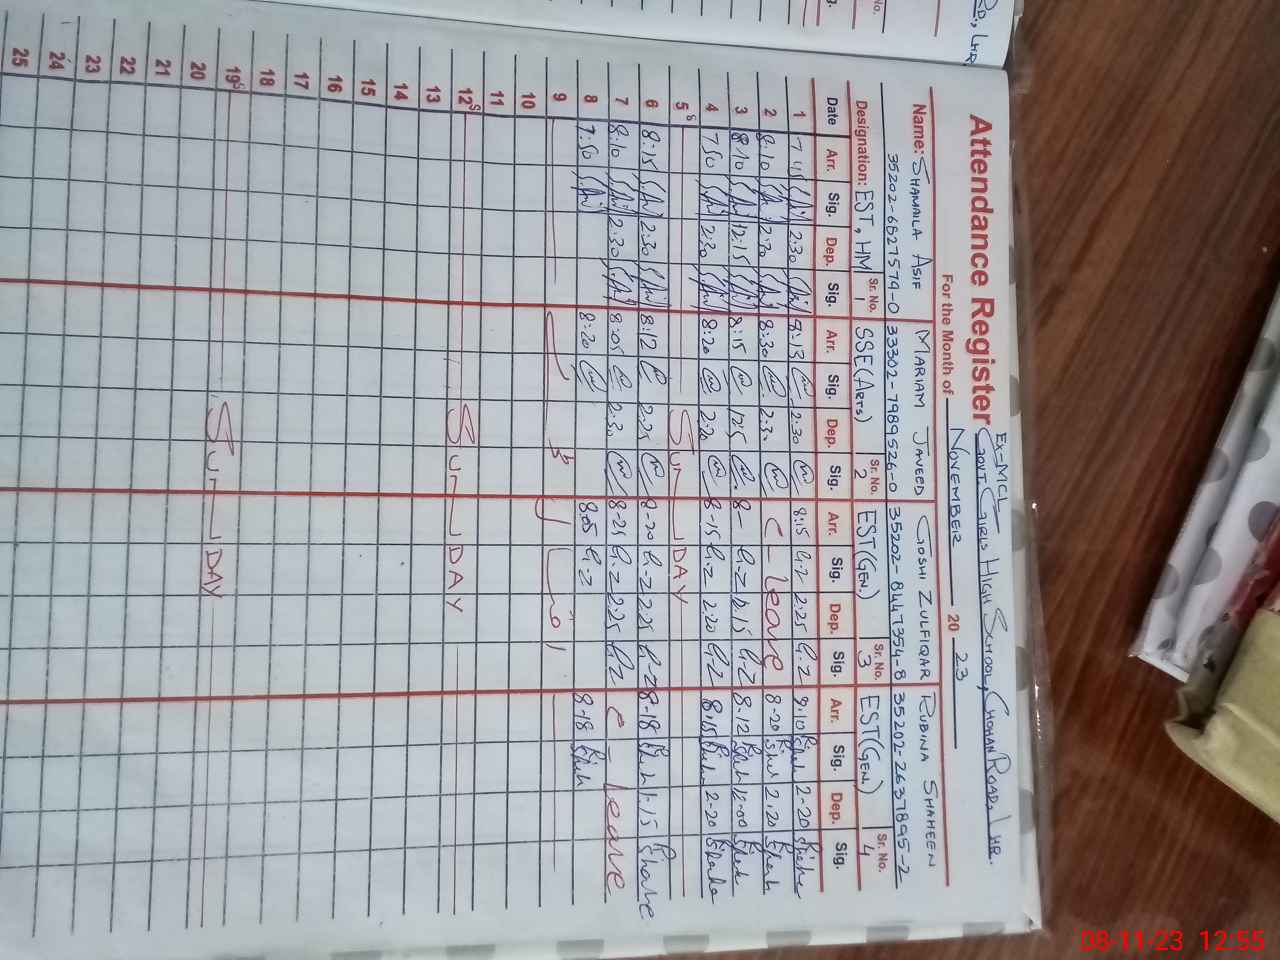 Attendance Register
Ex-MCL
Govt. Girls High School, Chohan Road, Lhr.
For the Month of November 20 23
Name: Shamaila Asif Mariam Javeed Goshi Zulfiqar Rubina Shaheen
35202-6627579-0 33302-7989526-0 35202-8447354-8 35202-2637895-2
Designation: EST, HM Sr. No. 1 SSE (Arts) Sr. No. 2 EST (Gen.) Sr. No. 3 EST (Gen.) Sr. No. 4
Date Arr. Sig. Dep. Sig. Arr. Sig. Dep. Sig. Arr. Sig. Dep. Sig. Arr. Sig. Dep. Sig.
1 2:30 8:13 2:30 8:15 G.Z 2:25 G.Z 8:10 2-20
2 8:10 8:30 2:30 C-leave 8-20 2:20
3 8:10 12:15 8:15 8- G.Z 12.15 G.Z 8-12 12-00
4 7:50 2:30 8:20 2:20 8-15 G.Z 2:20 G.Z 8:15 2-20
5 S Sunday
6 8:15 2:30 8:12 2:25 8-20 G.Z 2:25 G.Z 8-18 1-15
7 8:10 2:30 8:05 2:30 8-25 G.Z 2:25 G.Z C-leave
8 7:50 8:20 8:05 G.Z 8-18
9
10
11
12 S Sunday
13
14
15
16
17
18
19 S Sunday
20
21
22
23
24
25
Rd., Lhr.
08-11-23 12:55